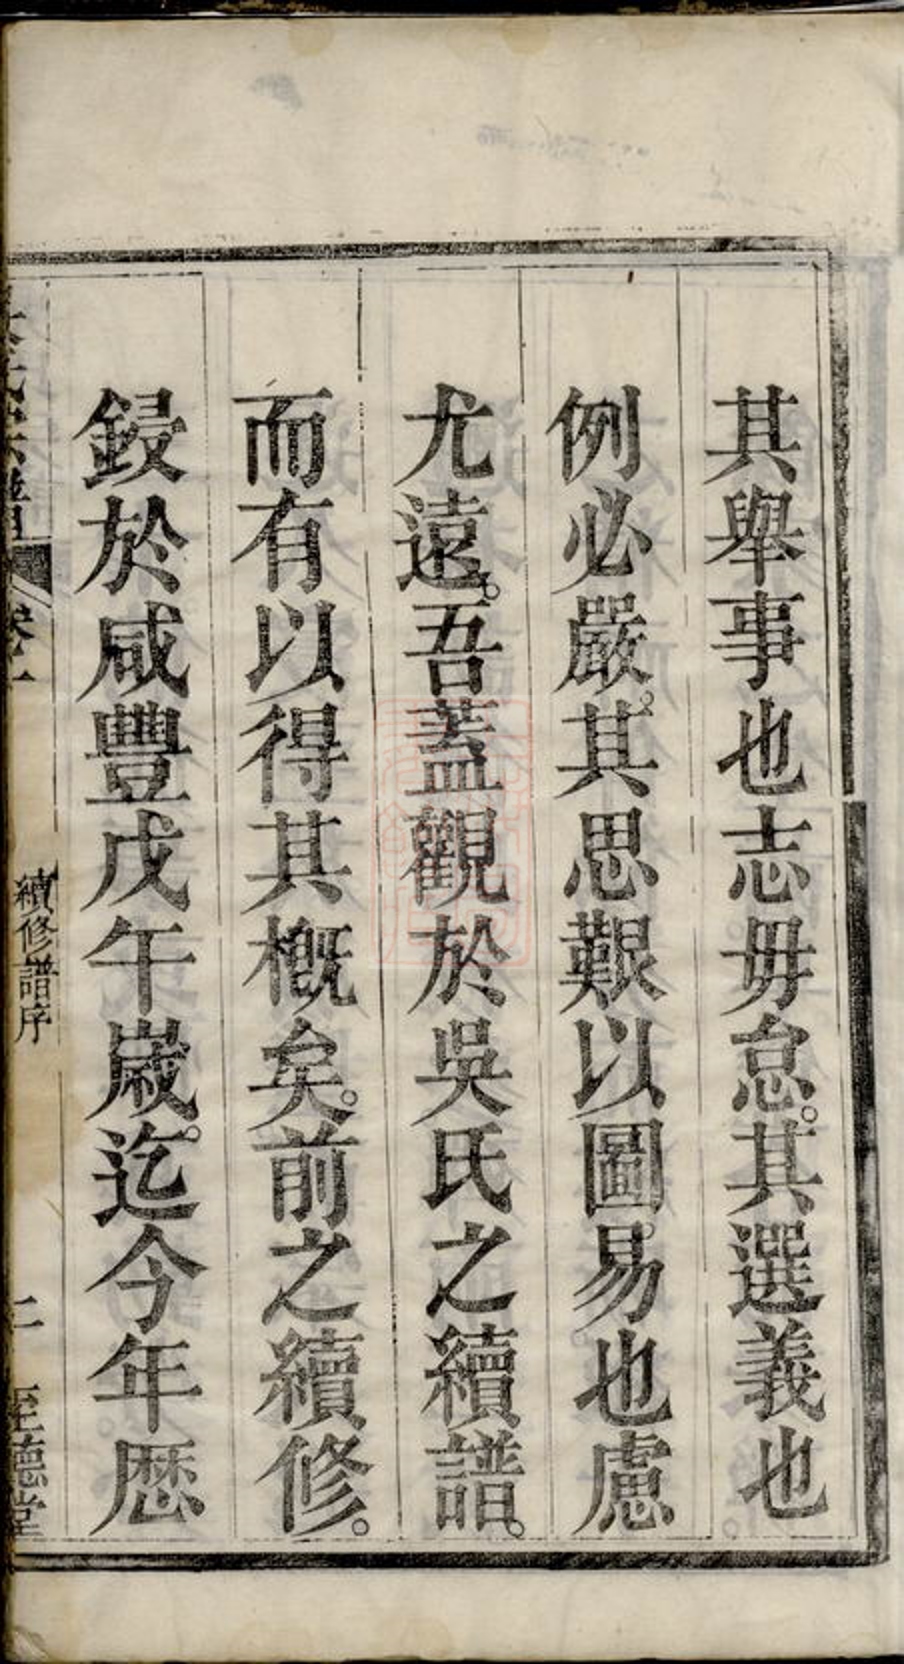 其舉事也志毋怠。其選義也
例必嚴。其思艱以圖易也慮
尤遠。吾蓋觀於吳氏之續譜。
而有以得其槪矣。前之續修。
鋟於咸豐戊午嵗。迄今年歴
氏宗譜 卷一 續修譜序 二 至德堂